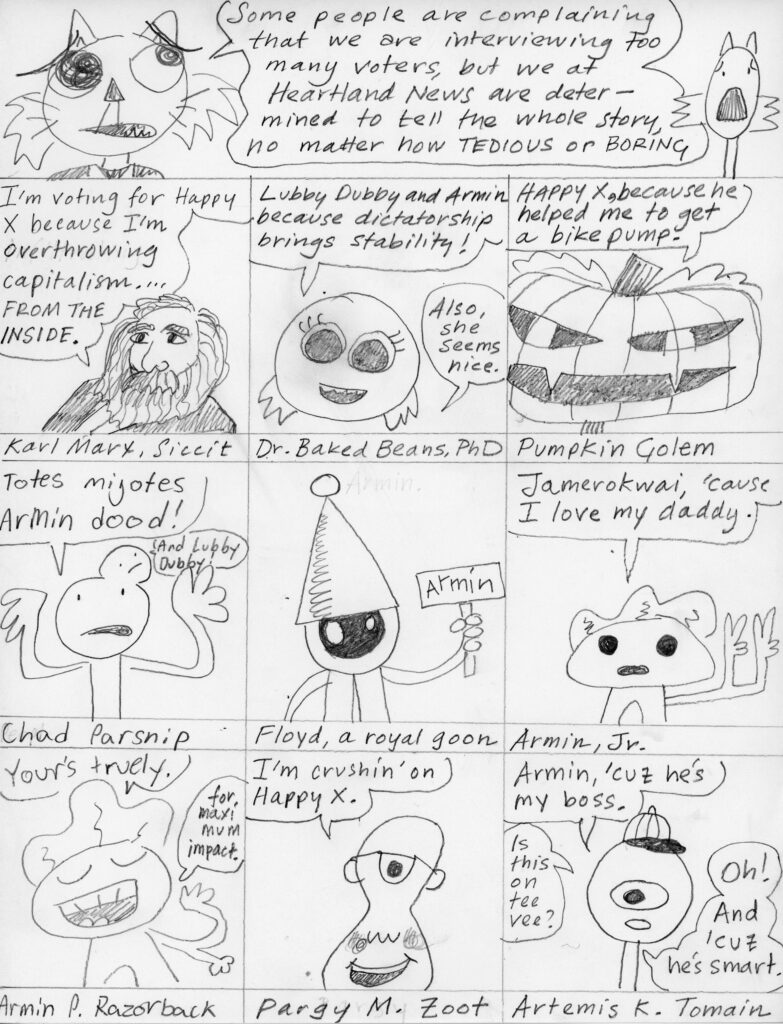 Some people are complaining
that we are interviewing too
many voters, but we at
Heartland News are deter-
mined to tell the whole story,
no matter how TEDIOUS or BORING
I'm voting for Happy
X because I'm
overthrowing
capitalism....
FROM THE
INSIDE.
Karl Marx, Siccit
Lubby Dubby and Armin
because dictatorship
brings stability!
Also,
she
seems
nice.
Dr. Baked Beans, PhD
HAPPY X, because he
helped me to get
a bike pump.
Pumpkin Golem
Totes mijotes
Armin dood!
And Lubby
Dubby!
Chad Parsnip
Armin.
Armin
Floyd, a royal goon
Jamerokwai, 'cause
I love my daddy.
Armin, Jr.
Your's truely.
for
maxi
mum
impact.
Armin P. Razorback
I'm crushin' on
Happy X.
Pargy M. Zoot
Armin, 'cuz he's
my boss.
Is
this
on
tee
vee?
Oh!
And
'cuz
he's smart.
Artemis K. Tomain